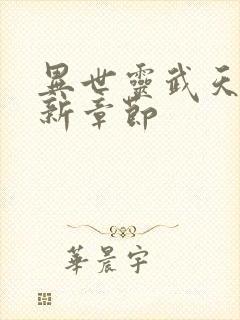 異世靈武天
新章節
華晨宇